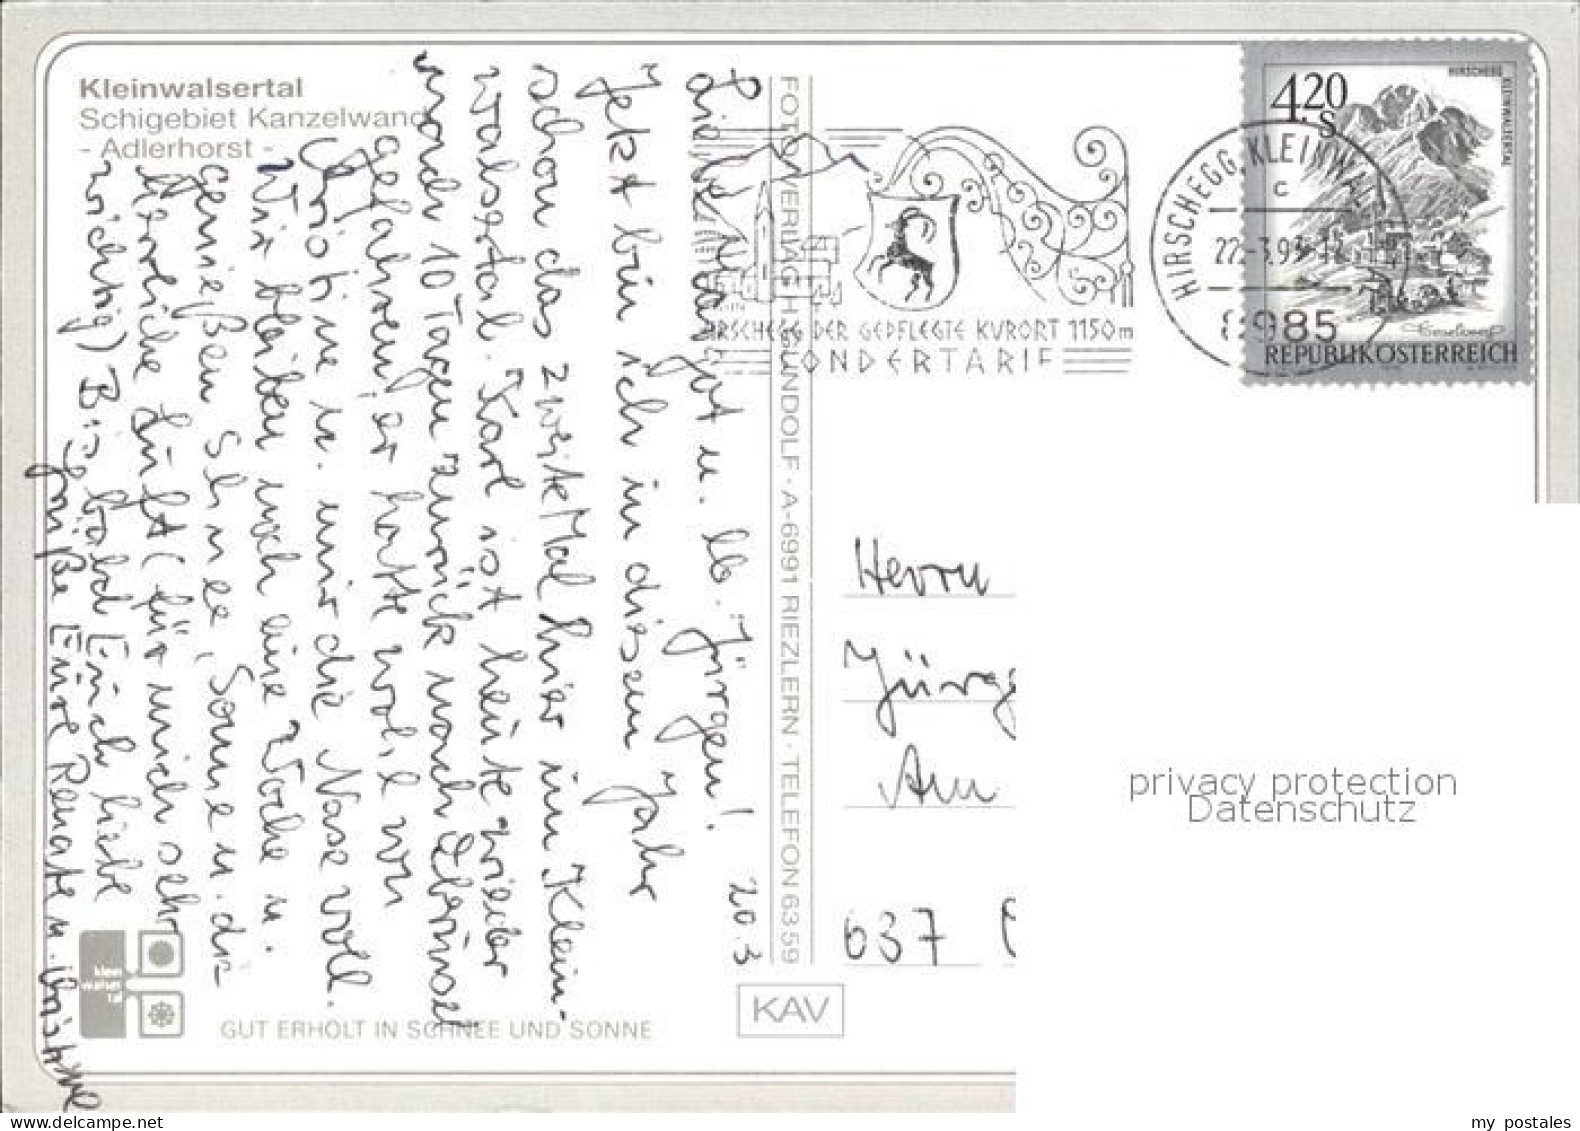 Kleinwalsertal
Schigebiet Kanzelwand
- Adlerhorst -
FOTO VERLAG H. GUNDOLF · A-6991 RIEZLERN · TELEFON 63 59
20.3
Liebe u. lb. Jürgen!
Jetzt bin ich in diesem Jahr
schon das zweite Mal hier im Klein-
walsertal. Karl ist heute wieder
nach 10 Tagen zurück nach
gefahren, er hatte wohl von
u. mir die Nase voll.
Wir bleiben noch eine Woche u.
genießen Schnee, Sonne u. die
herrliche Luft (für mich sehr
wichtig) Bis bald Euch liebe
Grüße Eure Renate u.
HIRSCHEGG DER GEPFLEGTE KURORT 1150m
SONDERTARIF
HIRSCHEGG, KLEINWAL
c
22.-3.93-12
6985
4.20
S
HIRSCHEGG KLEINWALSERTAL
REPUBLIK ÖSTERREICH
Herrn
Jürg
Am
637
privacy protection
Datenschutz
klein
walser
tal
GUT ERHOLT IN SCHNEE UND SONNE
KAV
my postales